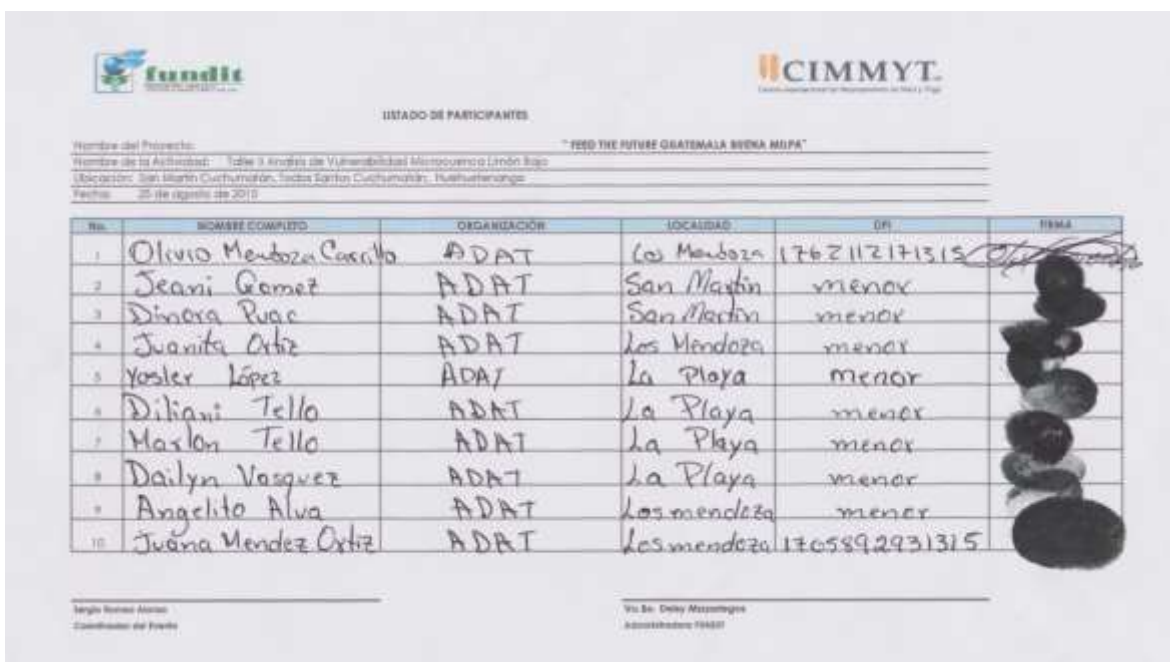 fundit
CIMMYT.
LISTADO DE PARTICIPANTES
Nombre del Proyecto: "FEED THE FUTURE GUATEMALA BUENA MILPA"
Nombre de la Actividad: Taller II Analisis de Vulnerabilidad Microcuenca Limón Bajo
Ubicación: San Martin Cuchumatán, Todos Santos Cuchumatán, Huehuetenango
Fecha: 25 de agosto de
No. NOMBRE COMPLETO ORGANIZACIÓN LOCALIDAD DPI FIRMA
1 Olivio Mendoza Carrillo ADAT Los Mendoza 1762112171315
2 Jeani Gomez ADAT San Martin menor
3 Dinora Puac ADAT San Martin menor
4 Juanita Ortiz ADAT Los Mendoza menor
5 Yosler López ADAT La Playa menor
6 Diliani Tello ADAT La Playa menor
7 Marlon Tello ADAT La Playa menor
8 Dailyn Vasquez ADAT La Playa menor
9 Angelito Alva ADAT Los mendoza menor
10 Juana Mendez Ortiz ADAT Los mendoza 1705892931315
Sergio Romeo Alonso Vo. Bo. Deisy Mazariegos
Coordinador del Evento Administradora FUNDIT